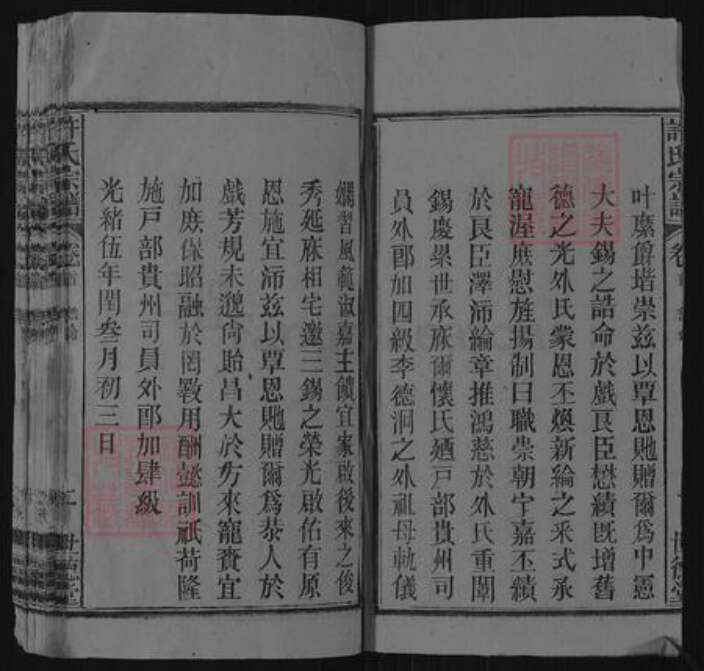 許氏宗譜
卷首
叶縻爵堦崇茲以覃恩貤贈爾爲中憲
大夫錫之誥命於戲艮臣懋績旣增舊
德之光外氏蒙恩丕煥新綸之釆式承
寵渥庶慰旌揚制曰職崇朝宁嘉丕績
於艮臣澤沛綸章推鴻慈於外氏重闈
錫慶累世承庥爾懷氏廼戸部貴州司
員外郎加四級李德泂之外祖母軌儀
嫻習風範淑嘉主饋宜家啟後來之俊
秀延庥相宅邀三錫之榮光啟佑有原
恩施宜沛茲以覃恩貤贈爾爲恭人於
戲芳規未邈尙貽昌大於方來寵賚宜
加庶保昭融於罔斁用酬懿訓祇荷隆
施戸部貴州司員外郎加肆級
光緒伍年閏叁月初三日
許氏宗譜
卷首
二
世德堂